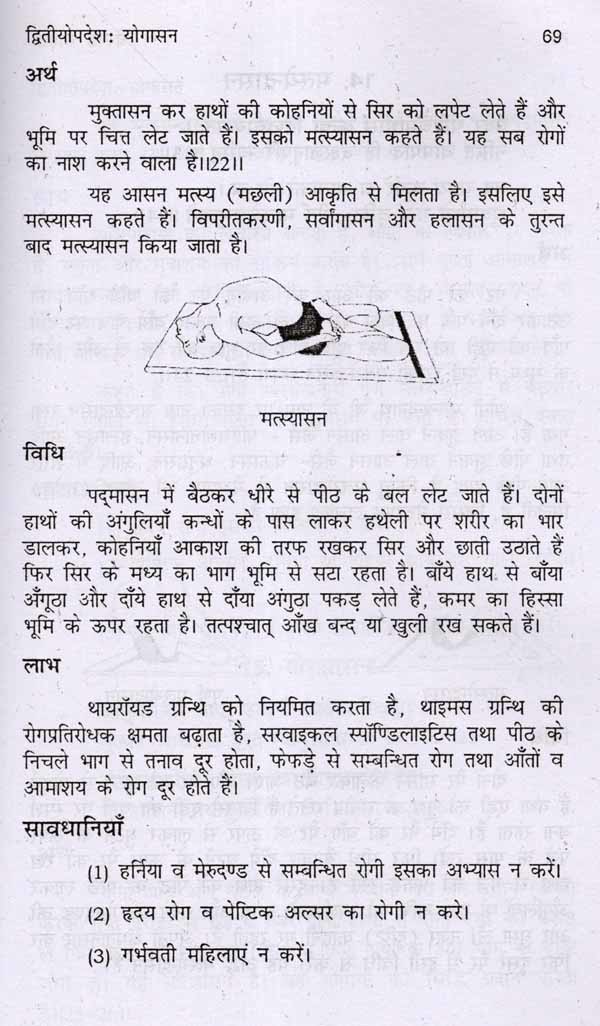 द्वितीयोपदेश: योगासन 69
अर्थ
मुक्तासन कर हाथों की कोहनियों से सिर को लपेट लेते हैं और
भूमि पर चित्त लेट जाते हैं, इसको मत्स्यासन कहते हैं। यह सब रोगों
का नाश करने वाला है।।22।।
यह आसन मत्स्य (मछली) आकृति से मिलता है। इसलिए इसे
मत्स्यासन कहते हैं। विपरीतकरणी, सर्वांगासन और हलासन के तुरन्त
बाद मत्स्यासन किया जाता है।
मत्स्यासन
विधि
पद्मासन में बैठकर धीरे से पीठ के बल लेट जाते हैं। दोनों
हाथों की अंगुलियाँ कन्धों के पास लाकर हथेली पर शरीर का भार
डालकर, कोहनियाँ आकाश की तरफ रखकर सिर और छाती उठाते हैं
फिर सिर के मध्य का भाग भूमि से सटा रहता है। बाँये हाथ से बाँया
अँगूठा और दाँये हाथ से दाँया अंगुठा पकड़ लेते हैं, कमर का हिस्सा
भूमि के ऊपर रहता है। तत्पश्चात् आँख बन्द या खुली रख सकते हैं।
लाभ
थायरॉयड ग्रन्थि को नियमित करता है, थाइमस ग्रन्थि की
रोगप्रतिरोधक क्षमता बढ़ाता है, सरवाइकल स्पॉण्डिलाइटिस तथा पीठ के
निचले भाग से तनाव दूर होता, फेफड़े से सम्बन्धित रोग तथा आँतों व
आमाशय के रोग दूर होते हैं।
सावधानियाँ
(1) हर्निया व मेरुदण्ड से सम्बन्धित रोगी इसका अभ्यास न करें।
(2) हृदय रोग व पेप्टिक अल्सर का रोगी न करें।
(3) गर्भवती महिलाएं न करें।